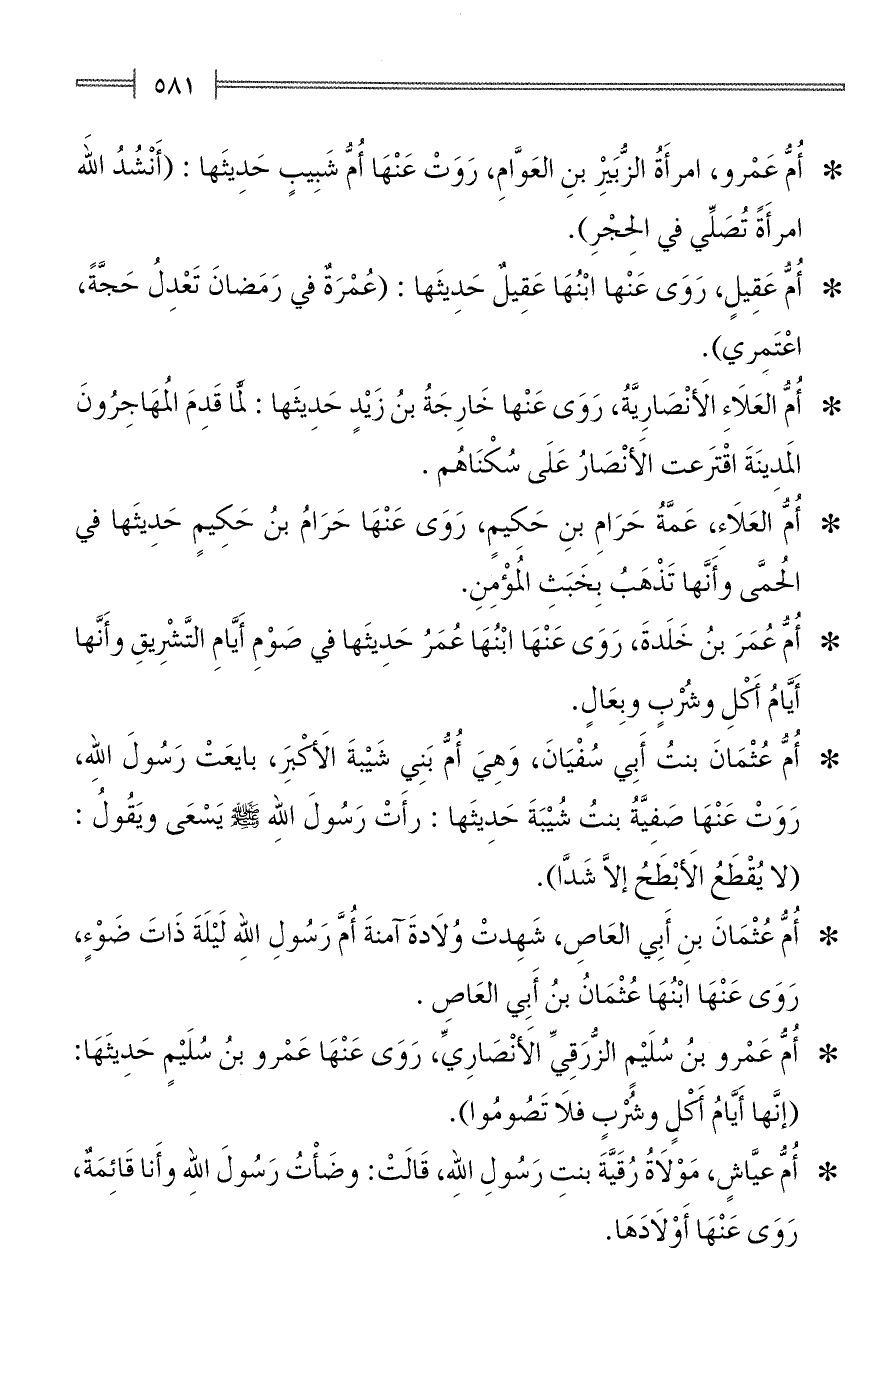 ٥٨١
* أُمُّ عَمْرو، امرأَةُ الزُّبَيْرِ بنِ العَوَّامِ، رَوَتْ عَنْهَا أُمُّ شَبِيبٍ حَدِيثَها : (أَنْشُدُ اللهَ
امرأَةً تُصَلِّي في الحِجْرِ).
* أُمُّ عَقِيلٍ، رَوَى عَنْها ابْنُهَا عَقِيلٌ حَدِيثَها : (عُمْرَةٌ في رَمَضانَ تَعْدِلُ حَجَّةً،
اعْتَمِري).
* أُمُّ العَلَاءِ الأَنْصَارِيَّةُ، رَوَى عَنْها خَارِجَةُ بنُ زَيْدٍ حَدِيثَها : لَمَّا قَدِمَ المُهَاجِرُونَ
المَدِينَةَ اقْتَرَعت الأَنْصَارُ عَلَى سُكْنَاهُم .
* أُمُّ العَلَاءِ، عَمَّةُ حَرَامِ بنِ حَكِيمٍ، رَوَى عَنْهَا حَرَامُ بنُ حَكِيمٍ حَدِيثَها في
الحُمَّى وأَنَّها تَذْهَبُ بِخَبَثِ المُؤْمِنِ.
* أُمُّ عُمَرَ بنُ خَلَدةَ، رَوَى عَنْهَا ابْنُهَا عُمَرُ حَدِيثَها في صَوْمِ أَيَّامِ التَّشْرِيقِ وأَنَّها
أَيَّامُ أَكْلٍ وشُرْبٍ وبِعَالٍ.
* أُمُّ عُثْمَانَ بنتُ أَبِي سُفْيَانَ، وَهِيَ أُمُّ بَنِي شَيْبَةَ الأَكْبَرَ، بايعَتْ رَسُولَ اللهِ،
رَوَتْ عَنْهَا صَفِيَّةُ بنتُ شُيْبَةَ حَدِيثَها : رأَتْ رَسُولَ اللهِ ﷺ يَسْعَى ويَقُولُ :
(لا يُقْطَعُ الأَبْطَحُ إلاَّ شَدَّا).
* أُمُّ عُثْمَانَ بنِ أَبِي العَاصِ، شَهِدتْ وُلَادةَ آمنةَ أُمَّ رَسُولِ اللهِ لَيْلَةَ ذَاتَ ضَوْءٍ،
رَوَى عَنْهَا ابْنُهَا عُثْمَانُ بنُ أَبِي العَاصِ .
* أُمُّ عَمْرو بنُ سُلَيْمٍ الزُّرَقِيِّ الأَنْصَارِيِّ، رَوَى عَنْهَا عَمْرو بنُ سُلَيْمٍ حَدِيثَهَا:
(إنَّها أَيَّامُ أَكْلٍ وشُرْبٍ فلَا تَصُومُوا).
* أُمُّ عيَّاشٍ، مَوْلَاةُ رُقَيَّةَ بنتِ رَسُولِ اللهِ، قَالَتْ: وضَأْتُ رَسُولَ اللهِ وأَنا قَائِمَةٌ،
رَوَى عَنْهَا أَوْلَادَهَا.